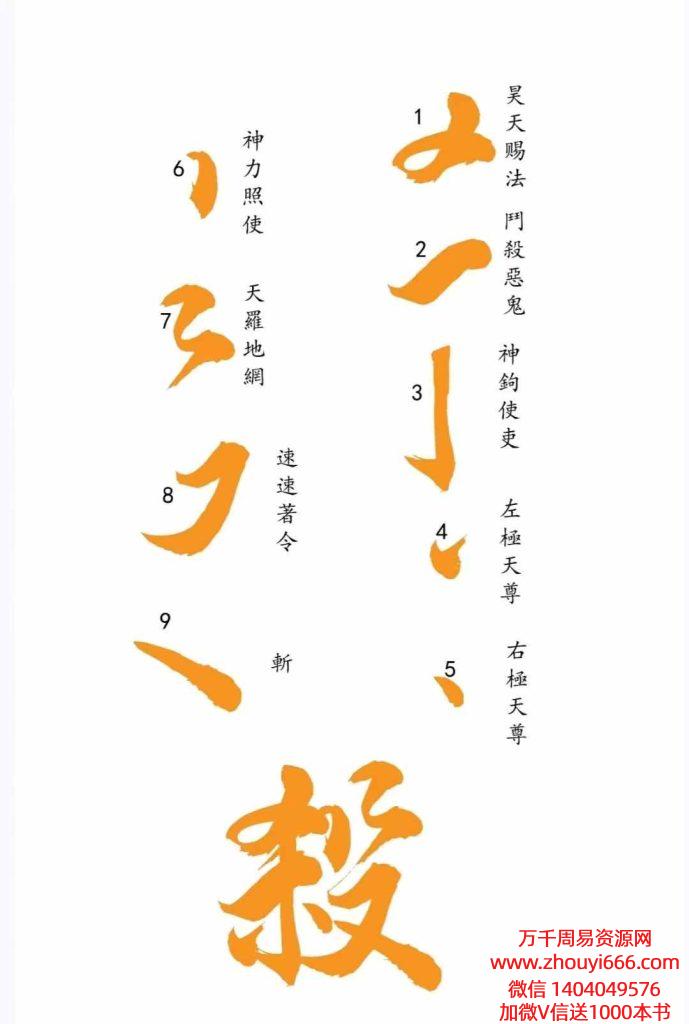 1
昊天赐法
2
鬥殺惡鬼
3
神鉤使吏
4
左極天尊
5
右極天尊
6
神力照使
7
天羅地網
8
速速著令
9
斬
殺
万千周易资源网
www.zhouyi666.com
微信 1404049576
加微V信送1000本书